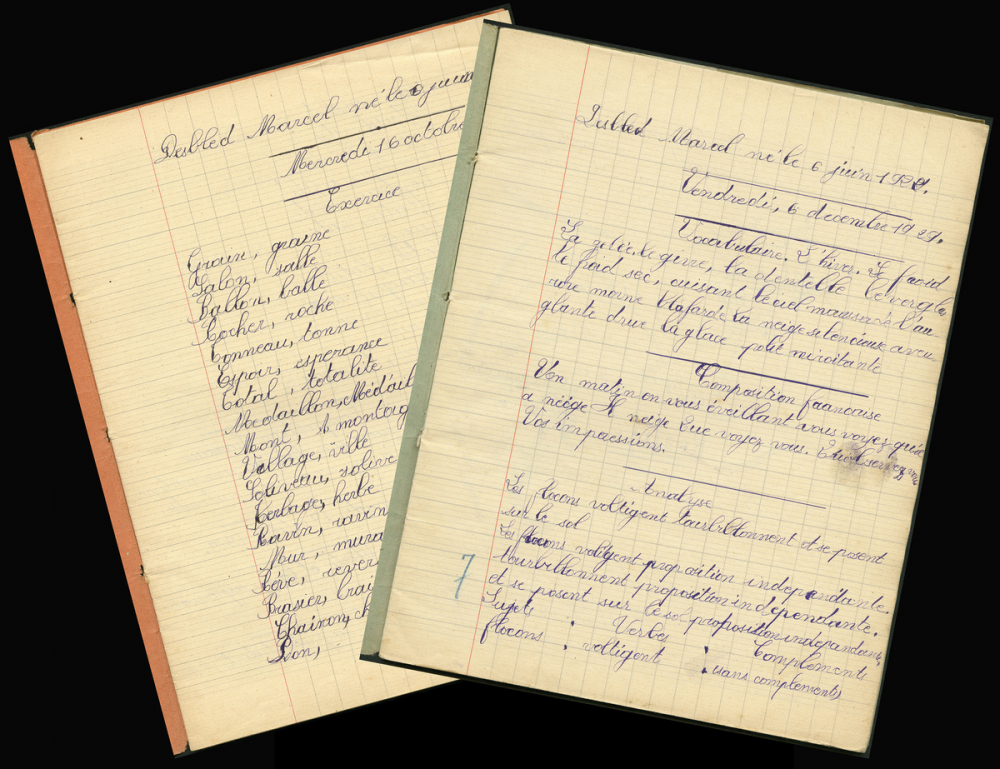 Desbled Marcel né le 6 juin
Mercredi 16 octobre
Exercice
Grain, graine
Salon, salle
Ballon, balle
Rocher, roche
Tonneau, tonne
Espoir, esperance
Total, totalité
Medaillon, Médail
Mont, montag
Village, ville
Soliveau, solive
Herbage, herbe
Ravin, ravin
Mur, mura
Rêve, rever
Brasier, brai
Chainon, ch
Lion,
Desbled Marcel né le 6 juin 192
Vendredi, 6 décembre 1929.
Vocabulaire. L'hiver. Le froid
La gelée, le givre, la dentelle le vergla
le froid sec, cuisant le ciel maussade l'au
rore morne blafarde La neige silencieuse aveu
glante drue la glace polit miroitante
Composition française
Un matin en vous éveillant vous voyez qu'il
a neigé Il neige Que voyez vous.
Vos impressions.
Analyse
Les flocons voltigent tourbillonnent et se posent
sur le sol
Les flocons voltigent proposition indépendante.
tourbillonnent proposition indépendante.
et se posent sur le sol proposition indépendante,
Sujets : Verbes : Compléments
flocons : voltigent : sans complements
7